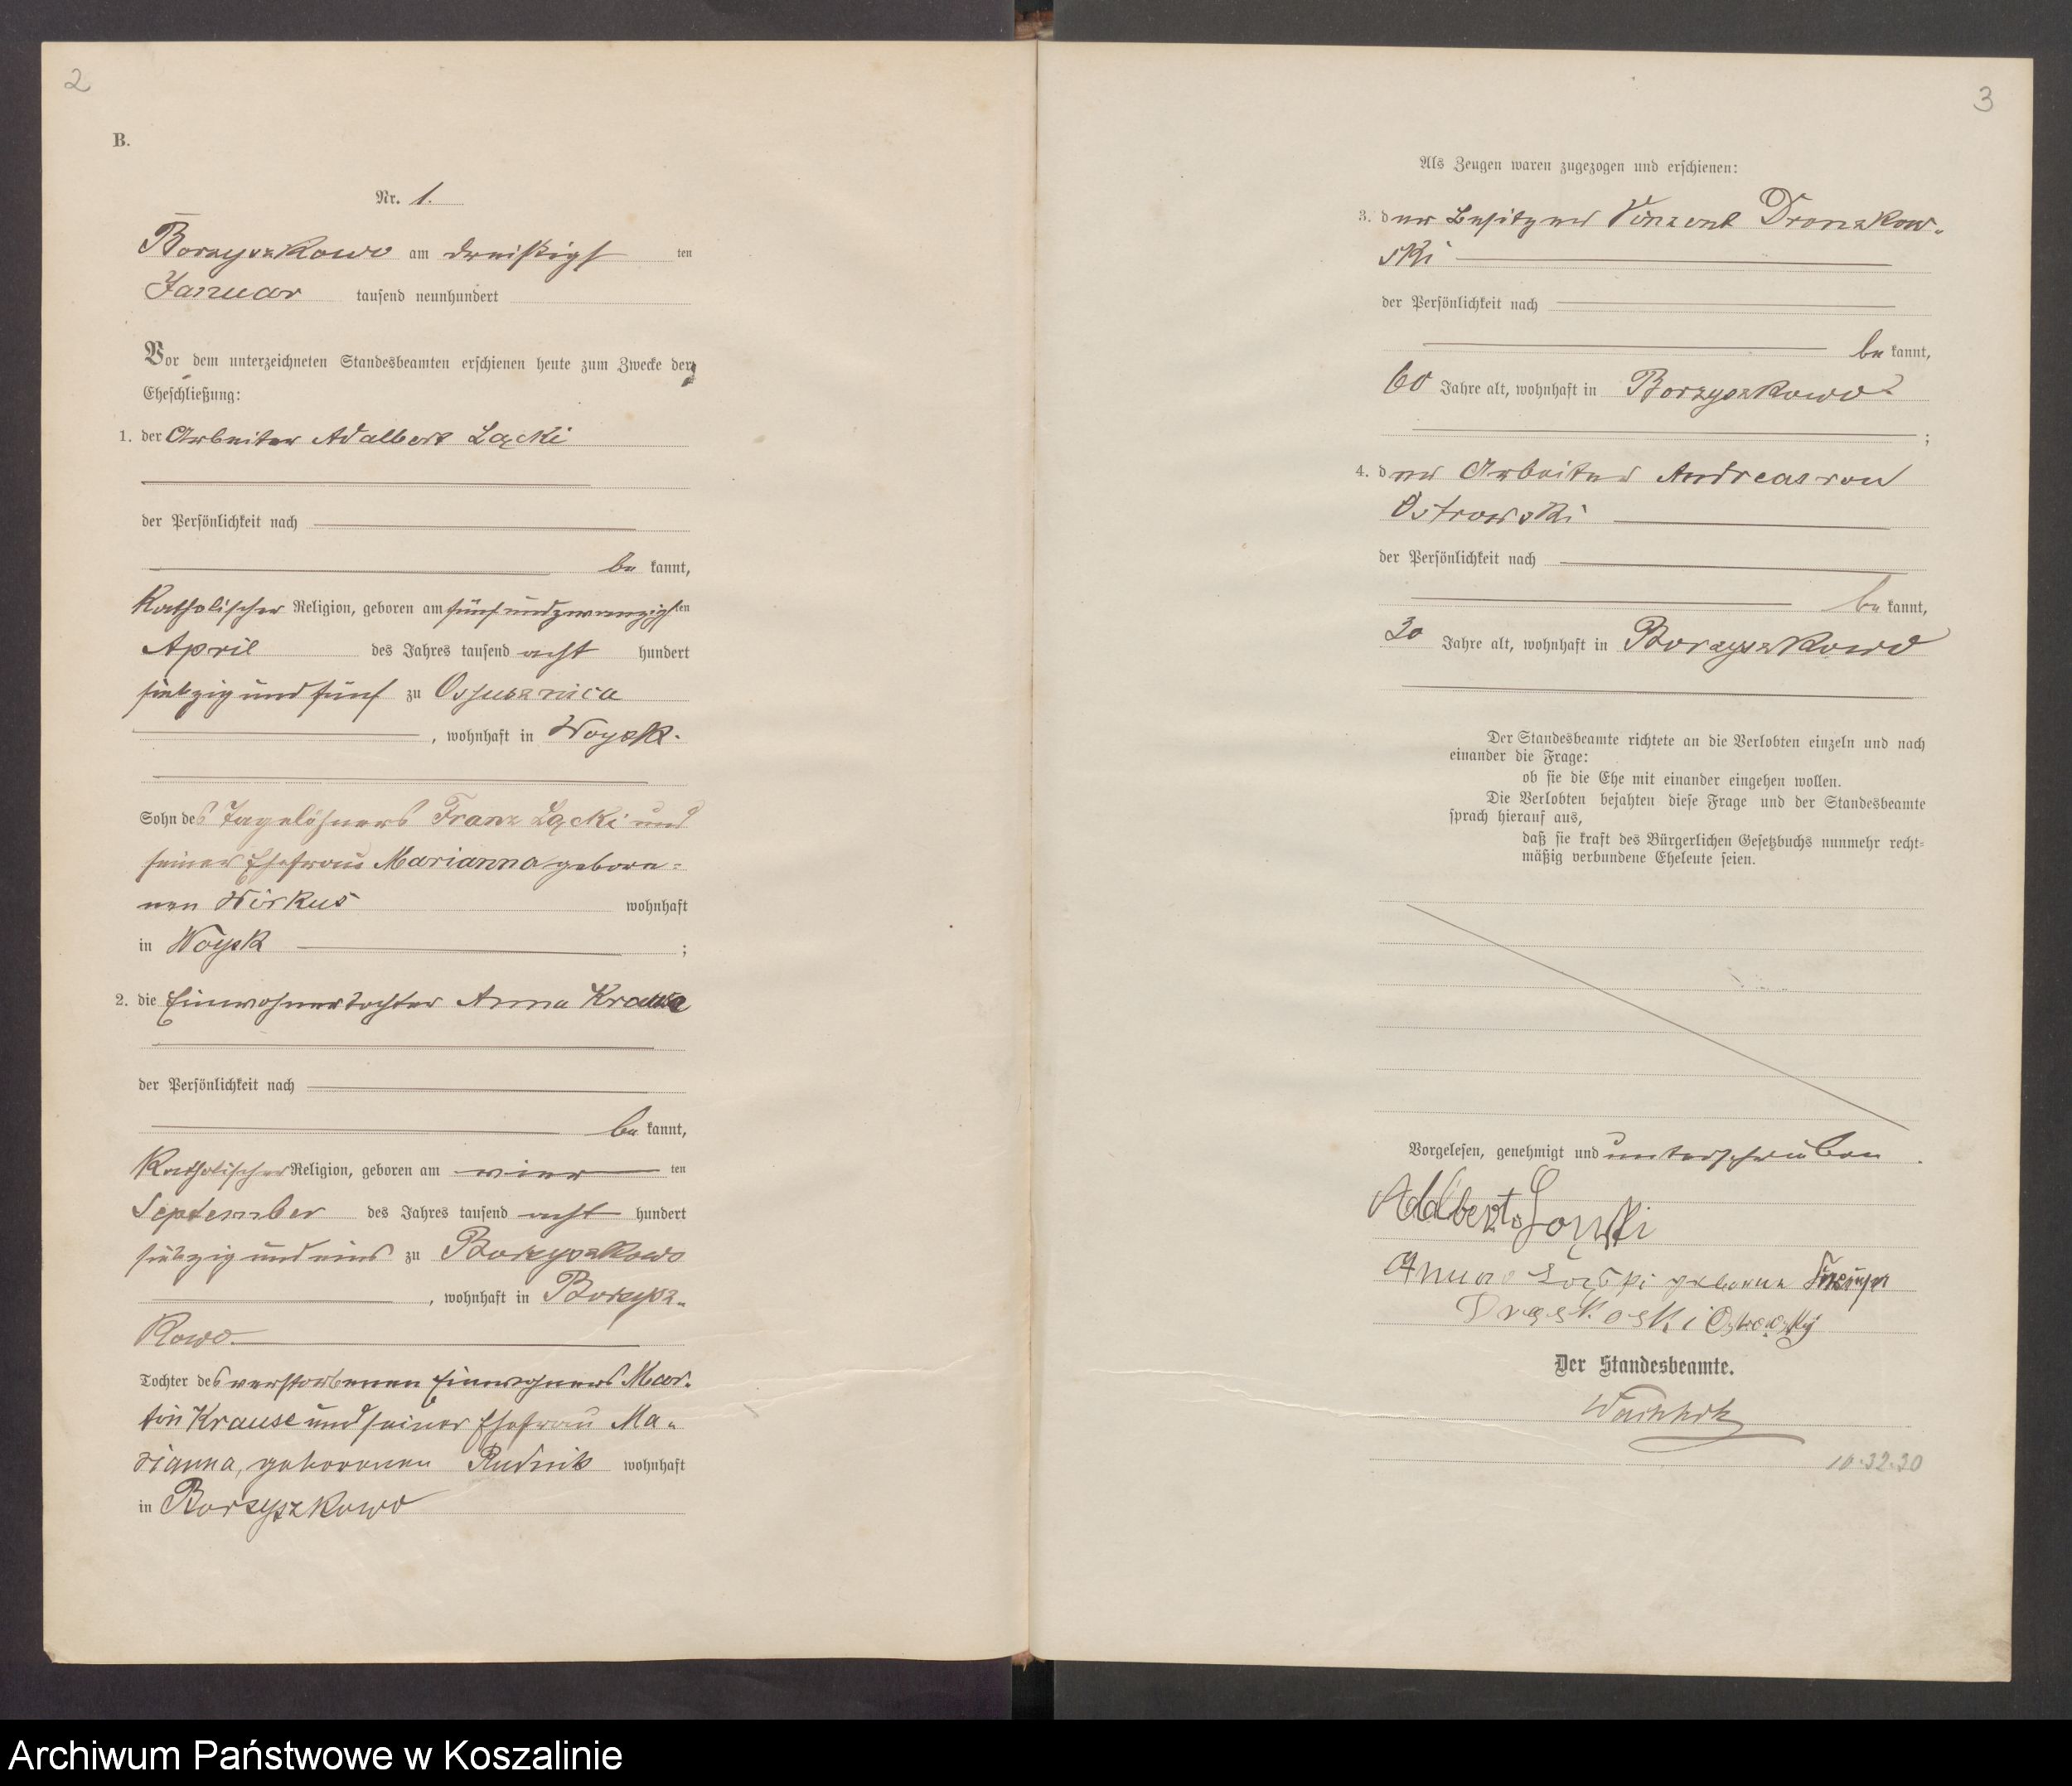 2
B.
Nr. 1.
Borzyszkowo am dreißigsten
Januar tausend neunhundert
Vor dem unterzeichneten Standesbeamten erschienen heute zum Zwecke der
Eheschließung:
1. der Arbeiter Adalbert Łącki
der Persönlichkeit nach
bekannt,
katholischer Religion, geboren am fünfundzwanzigsten
April des Jahres tausend acht hundert
siebzig und fünf zu Ossusznica
, wohnhaft in Woysk.
Sohn des Tagelöhners Franz Łącki und
seiner Ehefrau Marianna gebore-
nen Wirkus wohnhaft
in Woysk ;
2. die Einwohnertochter Anna Krause
der Persönlichkeit nach
bekannt,
katholischer Religion, geboren am vierten
September des Jahres tausend acht hundert
siebzig und eins zu Borzyszkowo
, wohnhaft in Borzysz-
kowo
Tochter des verstorbenen Einwohners Mar-
tin Krause und seiner Ehefrau Ma-
rianna, geborenen Rudnik wohnhaft
in Borzyszkowo
3
Als Zeugen waren zugezogen und erschienen:
3. der Besitzer Vinzent Dronzkow-
ski
der Persönlichkeit nach
bekannt,
60 Jahre alt, wohnhaft in Borzyszkowo
;
4. der Arbeiter Andreas von
Ostrowski
der Persönlichkeit nach
bekannt,
30 Jahre alt, wohnhaft in Borzyszkowo
Der Standesbeamte richtete an die Verlobten einzeln und nach
einander die Frage:
ob sie die Ehe mit einander eingehen wollen.
Die Verlobten bejahten diese Frage und der Standesbeamte
sprach hierauf aus,
daß sie kraft des Bürgerlichen Gesetzbuchs nunmehr recht-
mäßig verbundene Eheleute seien.
Vorgelesen, genehmigt und unterschrieben.
Adalbert
Anna geborene
Ostrowski
Der Standesbeamte.
10.32.30
Archiwum Państwowe w Koszalinie